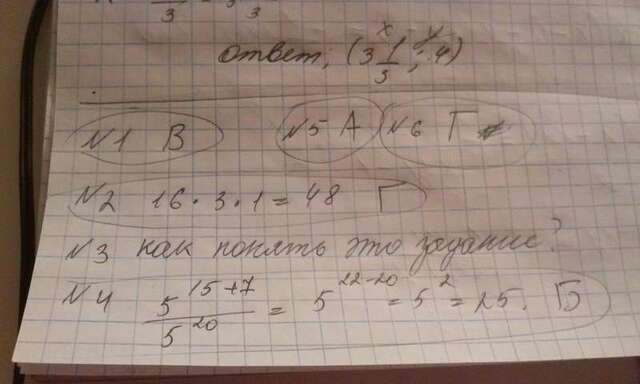 3 3 3
Ответ, (3 1/3 ; 4)
x y
№1 В №5 А №6 Г
№2 16 · 3 · 1 = 48 Г
№3 как понять это задание?
№4 5^15+7 / 5^20 = 5^22-20 = 5^2 = 25. Б